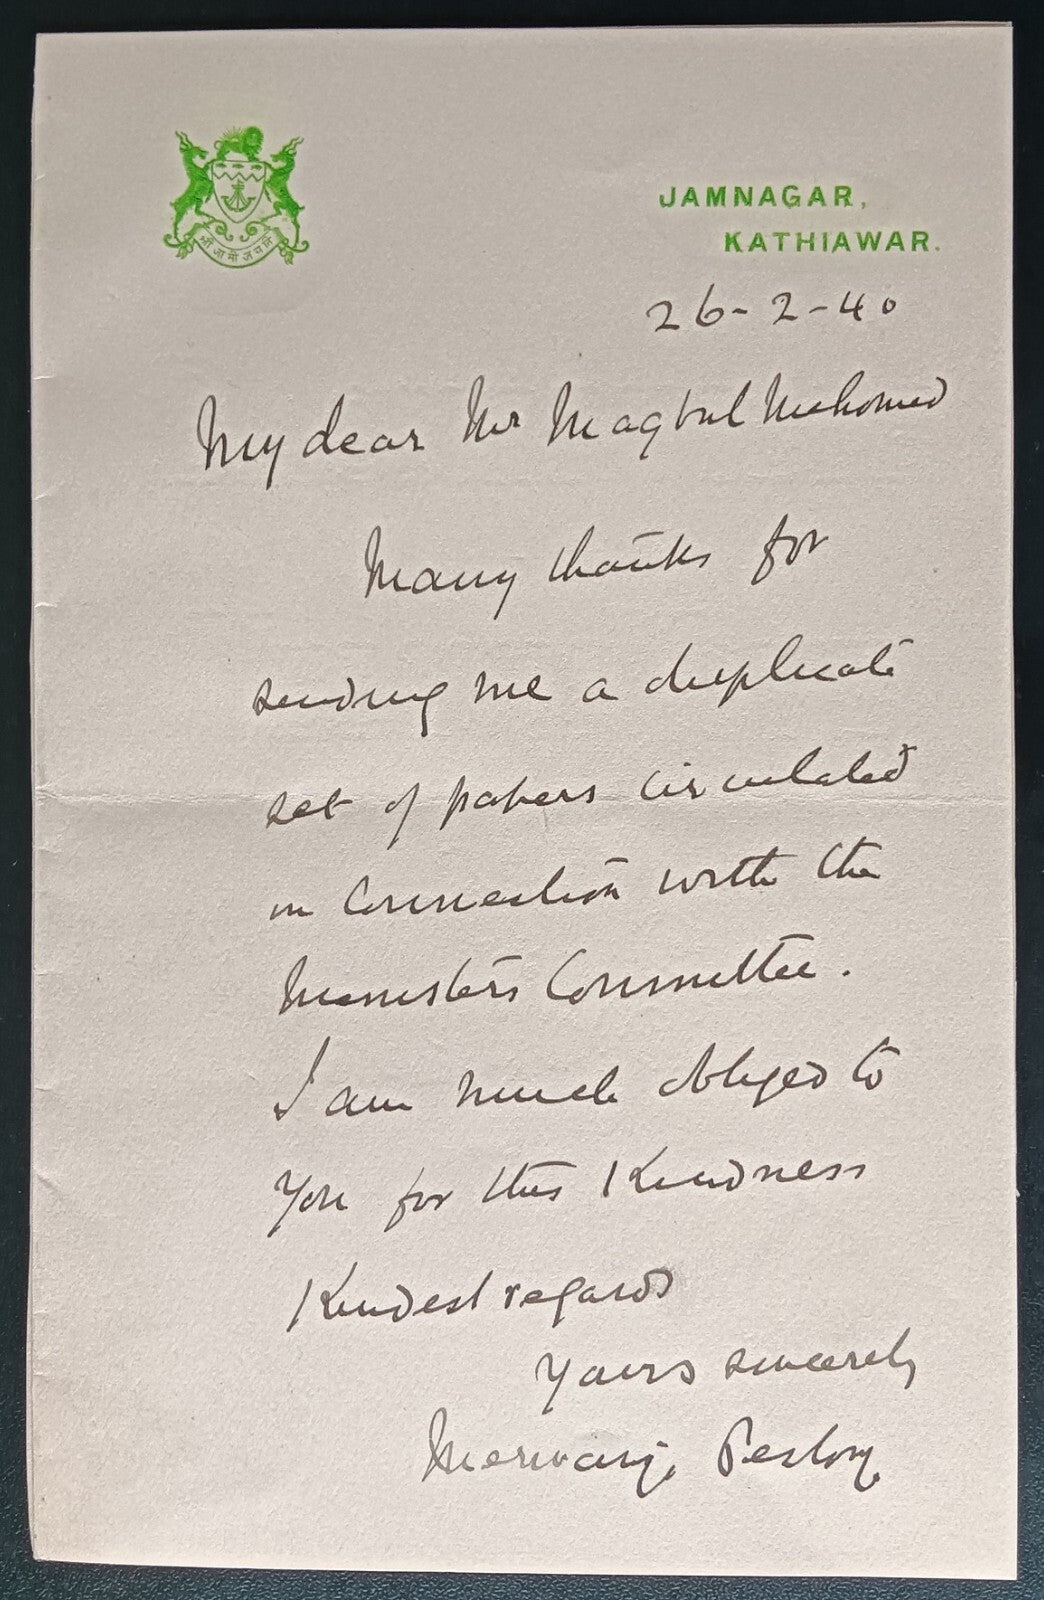 श्री जामो जयति
JAMNAGAR,
KATHIAWAR.
26-2-40
My dear Mr Maqbul Mahomed
Many thanks for
sending me a duplicate
set of papers circulated
in connection with the
Ministers Committee.
I am much obliged to
you for this kindness
Kindest regards
Yours sincerely
Merwanji Pestonji